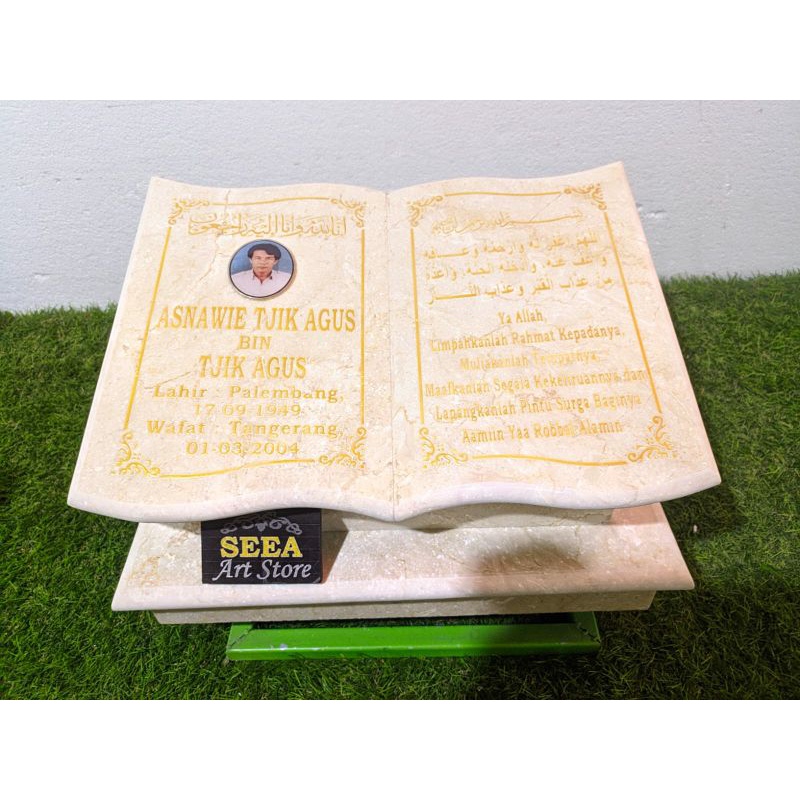 إنا لله وإنا إليه راجعون
ASNAWIE TJIK AGUS
BIN
TJIK AGUS
Lahir : Palembang,
17-09-1949
Wafat : Tangerang,
01-03-2004
بسم الله الرحمن الرحيم
اللهم اغفر له وارحمه وعافه
واعف عنه، وادخله الجنة، واعذه
من عذاب القبر وعذاب النار
Ya Allah,
Limpahkanlah Rahmat Kepadanya,
Muliakanlah Tempatnya,
Maafkanlah Segala Kekeliruannya dan
Lapangkanlah Pintu Surga Baginya
Aamiin Yaa Robbal Alamin
SEEA
Art Store